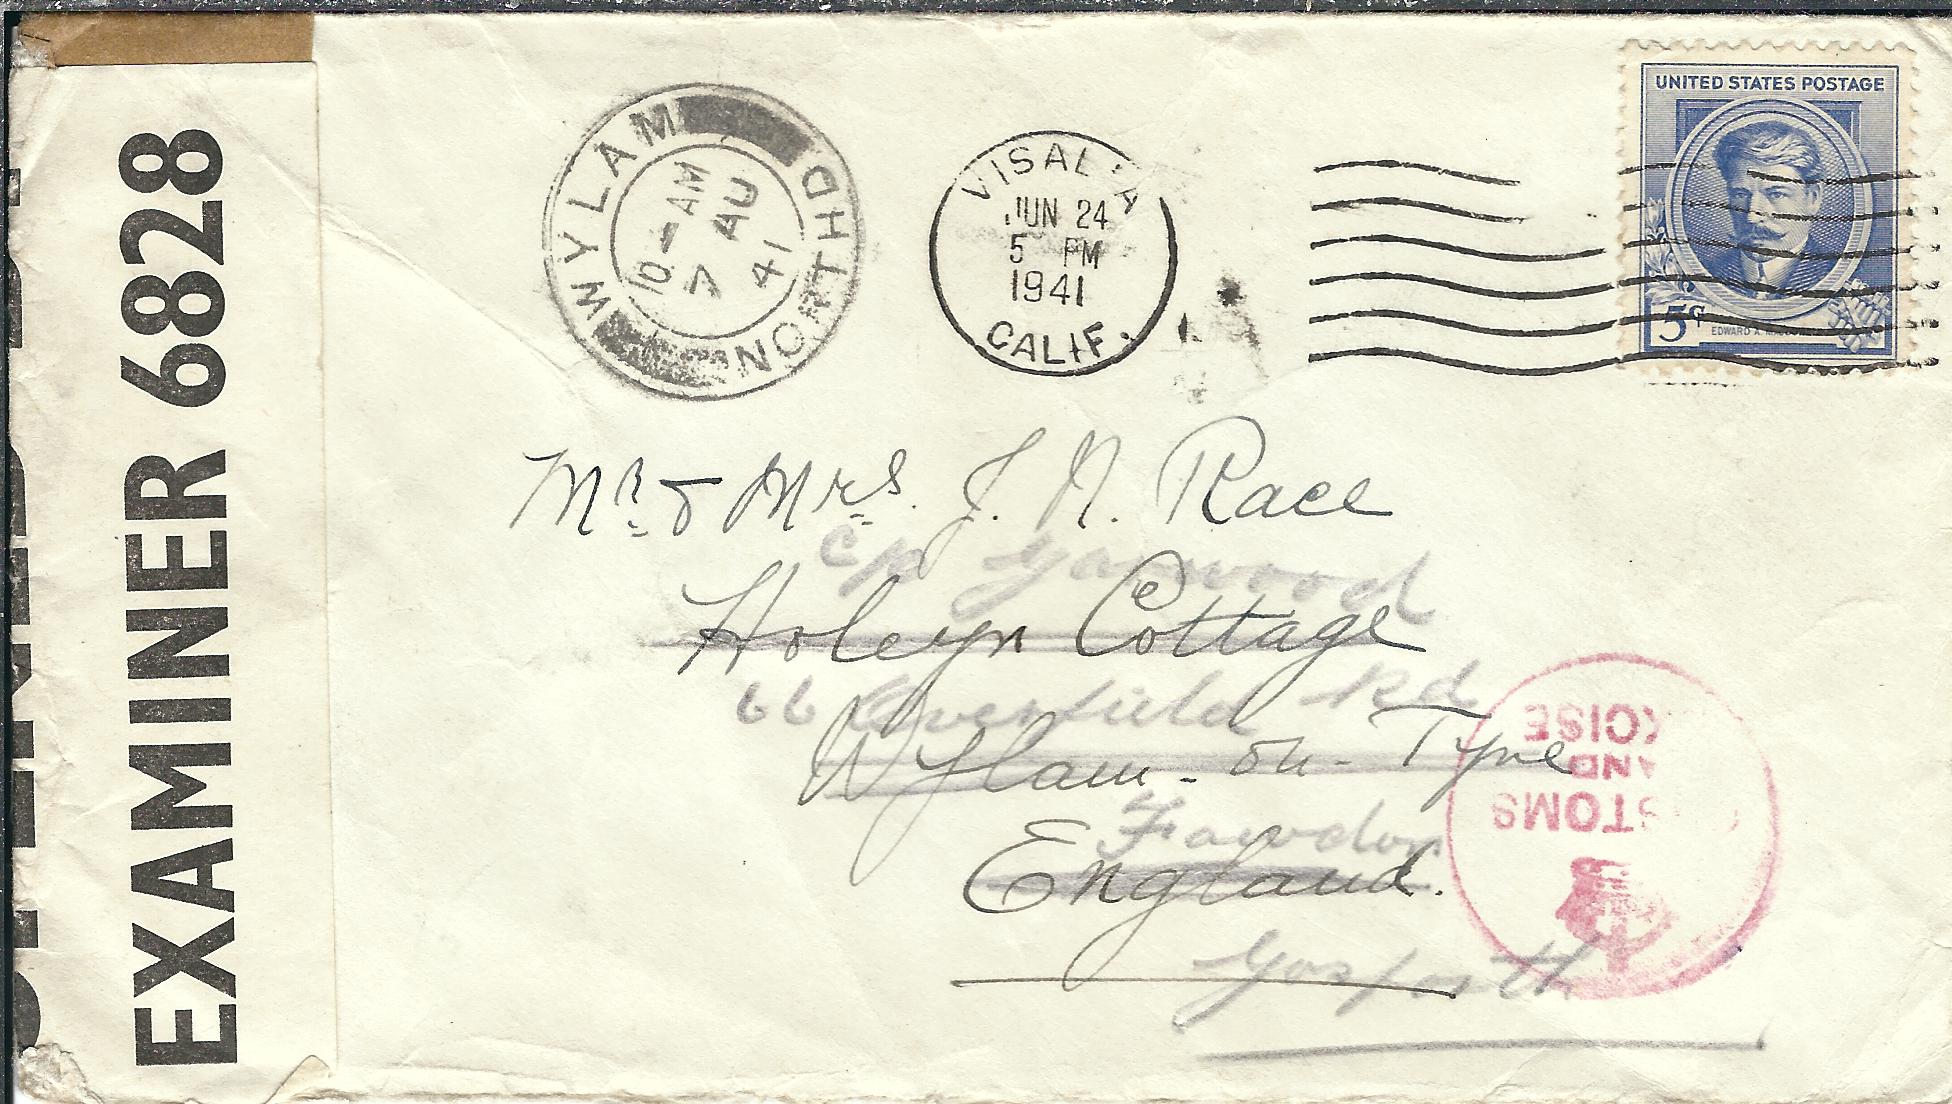 EXAMINER 6828
WYLAM
10-AM
7 AU
41
NORTHD
VISALIA
JUN 24
5 PM
1941
CALIF.
UNITED STATES POSTAGE
5¢
EDWARD A.
Mr. & Mrs. J. N. Race
c/o Garwood
Holeyn Cottage
66 Rd
Wylam-on-Tyne
Fawdon
England.
Gosforth
STOMS
AND